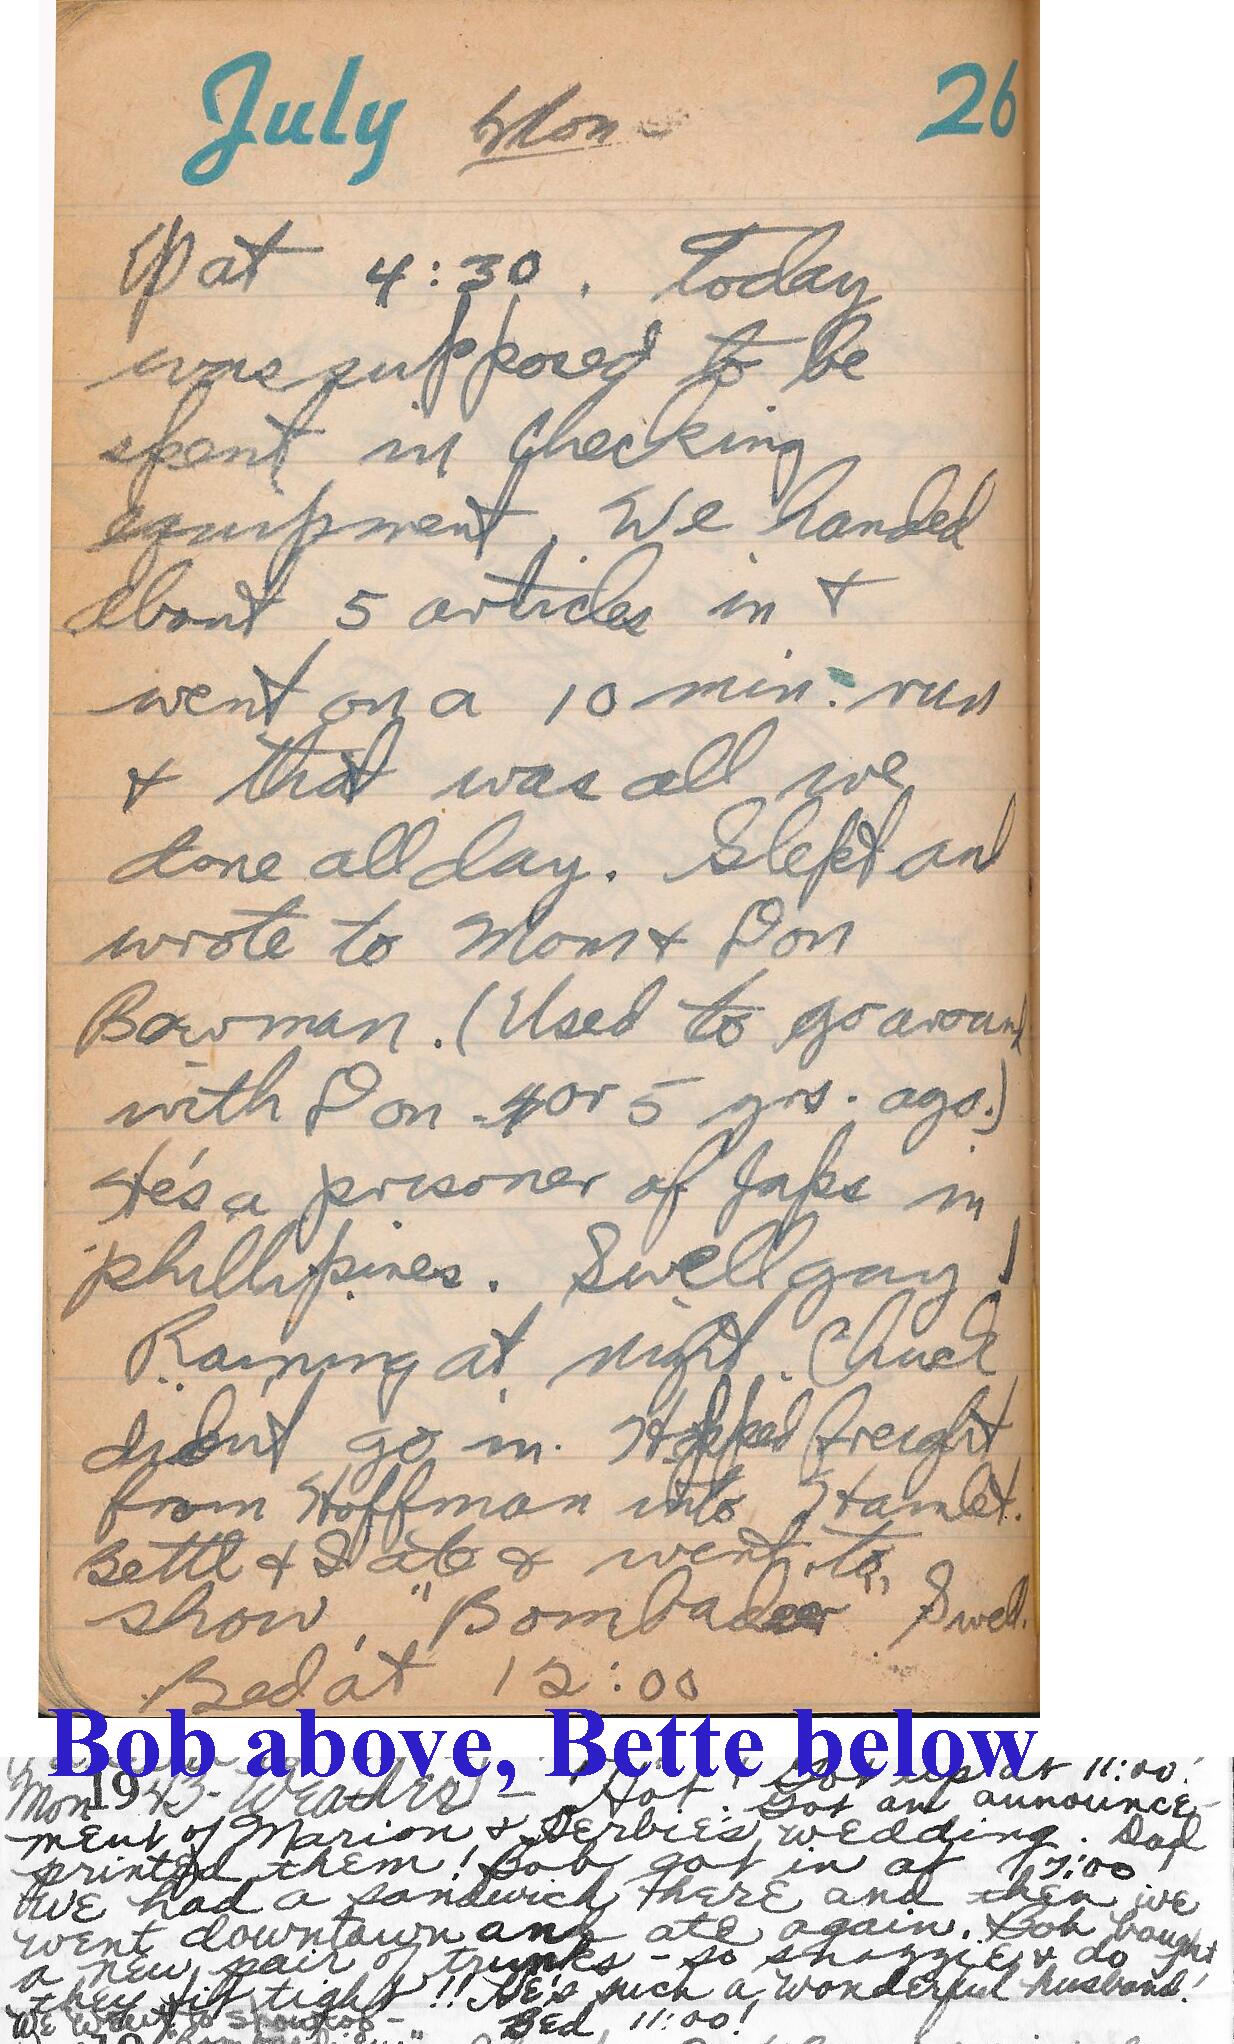 July Mon 26
Up at 4:30. Today
was supposed to be
spent in checking
equipment. We handed
about 5 articles in +
went on a 10 min. run
+ that was all we
done all day. Slept and
wrote to Mom + Don
Bowman. (Used to go around
with Don 4 or 5 yrs. ago.)
He's a prisoner of Japs in
phillipines. Swell guy!
Raining at night. Chuck
didn't go in. Hopped freight
from Hoffman into Hamlet.
Bette + I ate + went to
show, "Bombadeer" Swell.
Bed at 12:00
Bob above, Bette below
Mon 1943 - Weather - Hot! Got up at 11:00!
Got an announce-
ment of Marion + Herbie's wedding. Dad
printed them! Bob got in at 7:00
We had a sandwich there and then we
went downtown and ate again. Bob bought
a new pair of trunks - so snazzie + do
they fit tight!! He's such a wonderful husband!
We went to show
Bed 11:00!